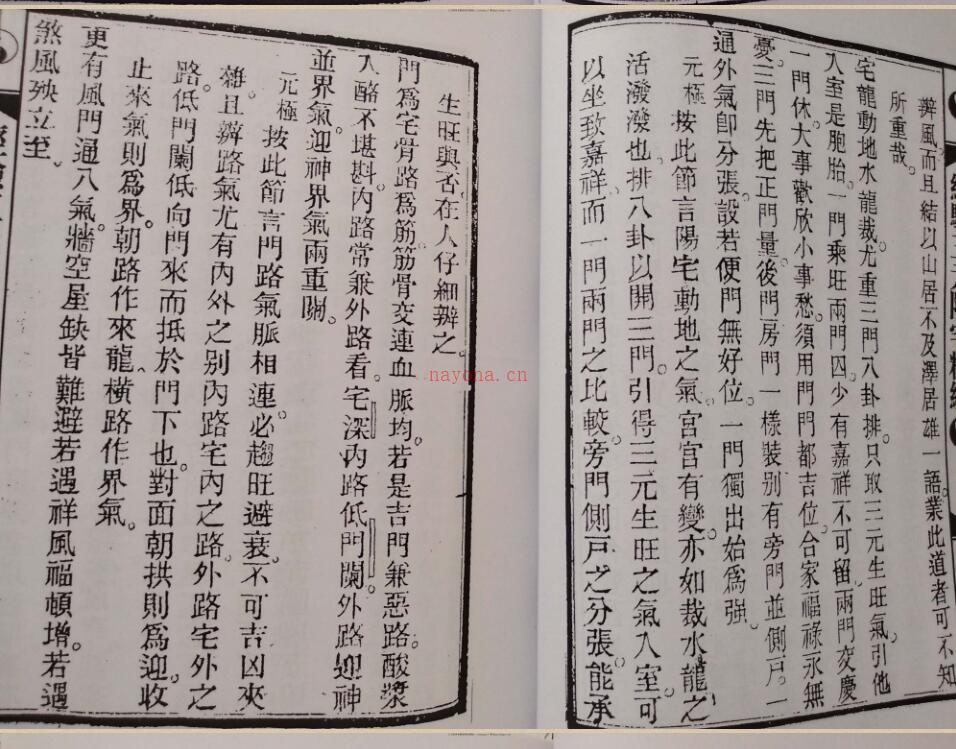 辨風而且結以山居不及澤居雄一語業此道者可不知
所重哉
宅龍動地水龍裁尤重三門八卦排只取三元生旺氣引他
入室是胞胎一門乘旺兩門囚少有嘉祥不可留兩門交慶
一門休大事歡欣小事愁須用門門都吉位合家福祿永無
憂三門先把正門量後門房門一樣裝別有旁門並側戶一
通外氣卽分張設若便門無好位一門獨出始爲強
元極按此節言陽宅動地之氣宮宮有變亦如裁水龍之
活潑潑也排八卦以開三門引得三元生旺之氣入室可
以坐致嘉祥而一門兩門之比較旁門側戶之分張能承
生旺與否在人仔細辨之
門爲宅骨路爲筋筋骨交連血脈均若是吉門兼惡路酸漿
入酪不堪斟內路常兼外路看宅深內路低門闌外路迎神
並界氣迎神界氣兩重關
元極按此節言門路氣脈相連必趨旺避衰不可吉凶夾
雜且辨路氣尤有內外之別內路宅內之路外路宅外之
路低門闌低向門來而抵於門下也對面朝拱則爲迎收
止來氣則爲界朝路作來龍橫路作界氣
更有風門通八氣牆空屋缺皆難避若遇祥風福頓增若遇
煞風殃立至
nayona.cn